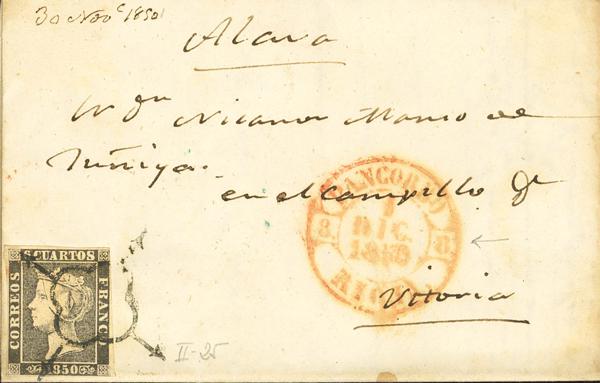 30 Nov.e 1850
Alava
Sr Dn Nicanor Manso de
Zuñiga.
en el campillo de
PANCORBO
1
DIC.
1850
8 8
Vitoria
6 CUARTOS
CORREOS
FRANCO
1850
II-25